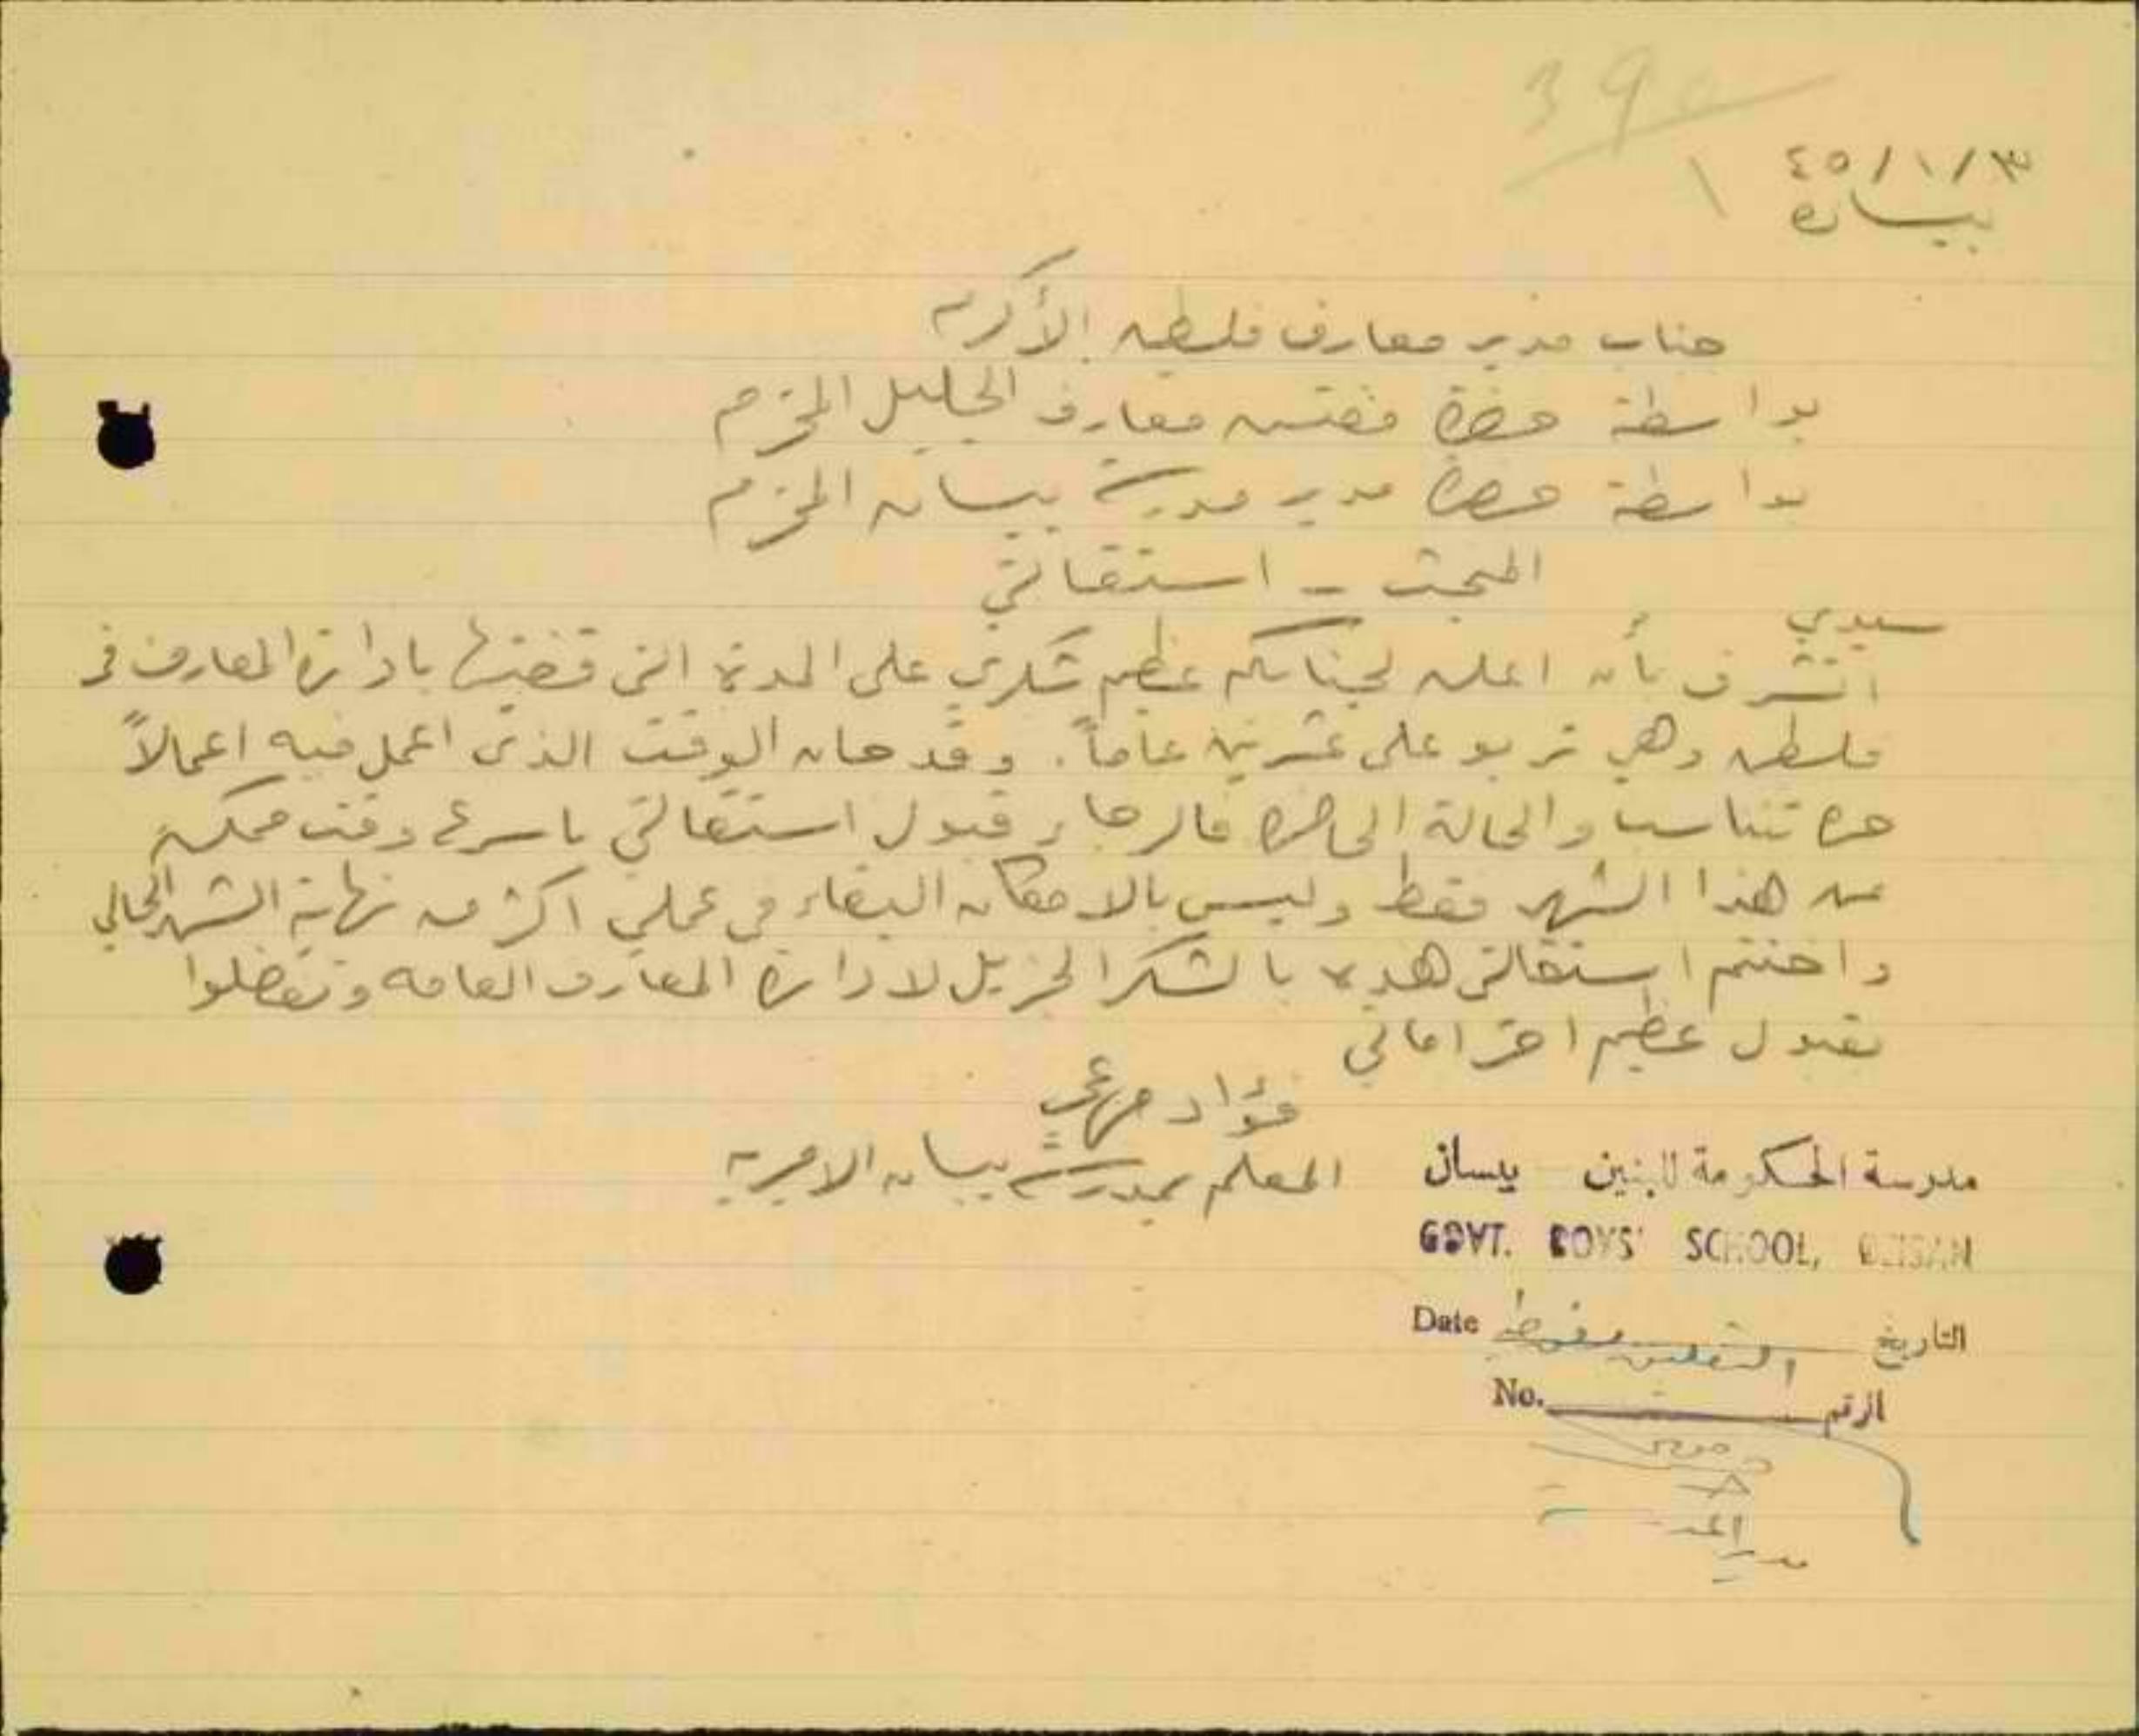 39
٤٥/١/٣
بيسان
جناب مدير معارف فلسطين الأكرم
بواسطة حضرة مفتش معارف الجليل المحترم
بواسطة حضرة مدير مدرسة بيسان المحترم
المبحث - استقالتي
سيدي
اتشرف بأن اعلن لجنابكم عظيم شكري على المدة التي قضيتها بادارة المعارف في
فلسطين وهي تربو على عشرين عاماً. وقد حان الوقت الذي اعمل فيه اعمالاً
حرة تتناسب والحالة الحاضرة فالرجاء قبول استقالتي باسرع وقت ممكن
من هذا الشهر فقط وليس بالامكان البقاء في عملي اكثر من نهاية الشهر الحالي
واختتم استقالتي هذه بالشكر الجزيل لادارة المعارف العامه وتفضلوا
بقبول عظيم احتراماتي
فؤاد
المعلم بمدرسة بيسان الاميرية
مدرسة الحكومة للبنين بيسان
GOVT. BOYS' SCHOOL, BEISAN
التاريخ Date
الرقم No.
مدير المدرسة